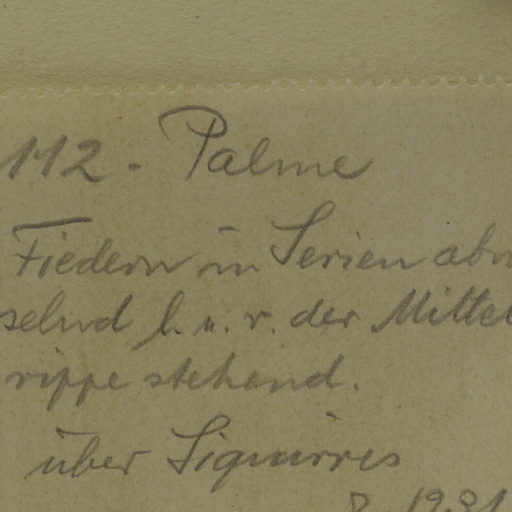 112 - Palme
Fiedern in Serien abw
selnd l. u. r. der Mittel
rippe stehend.
über Siquirres
8. 1931